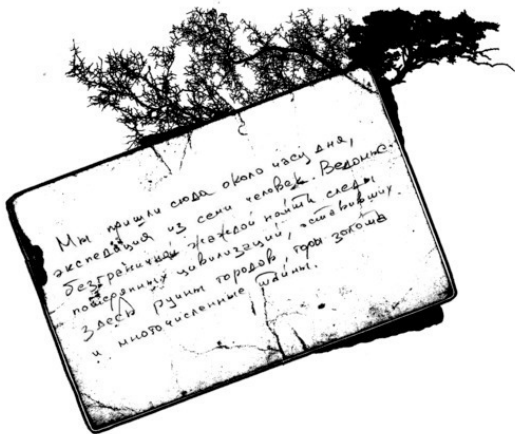 Мы пришли сюда около часу дня,
экспедиция из семи человек. Ведомые
безграничной жаждой найти следы
потерянных цивилизаций, оставивших
здесь руины городов, горы золота
и многочисленные тайны.